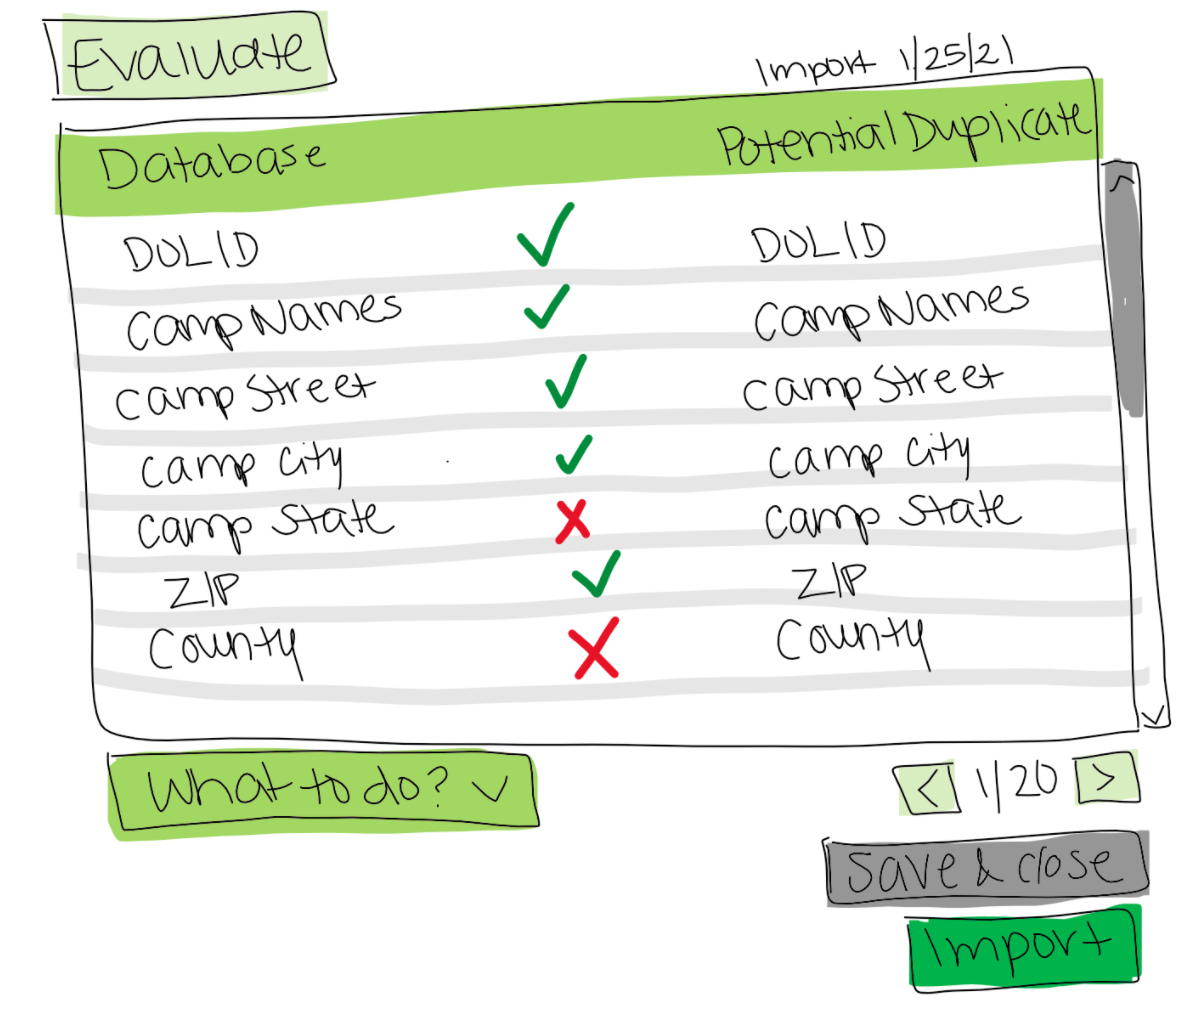 Evaluate
Import 1/25/21
Database Potential Duplicate
DOLID ✓ DOLID
Camp Names ✓ Camp Names
Camp Street ✓ Camp Street
Camp City ✓ Camp City
Camp State X Camp State
ZIP ✓ ZIP
County X County
What to do? ∨
< 1/20 >
Save & Close
Import